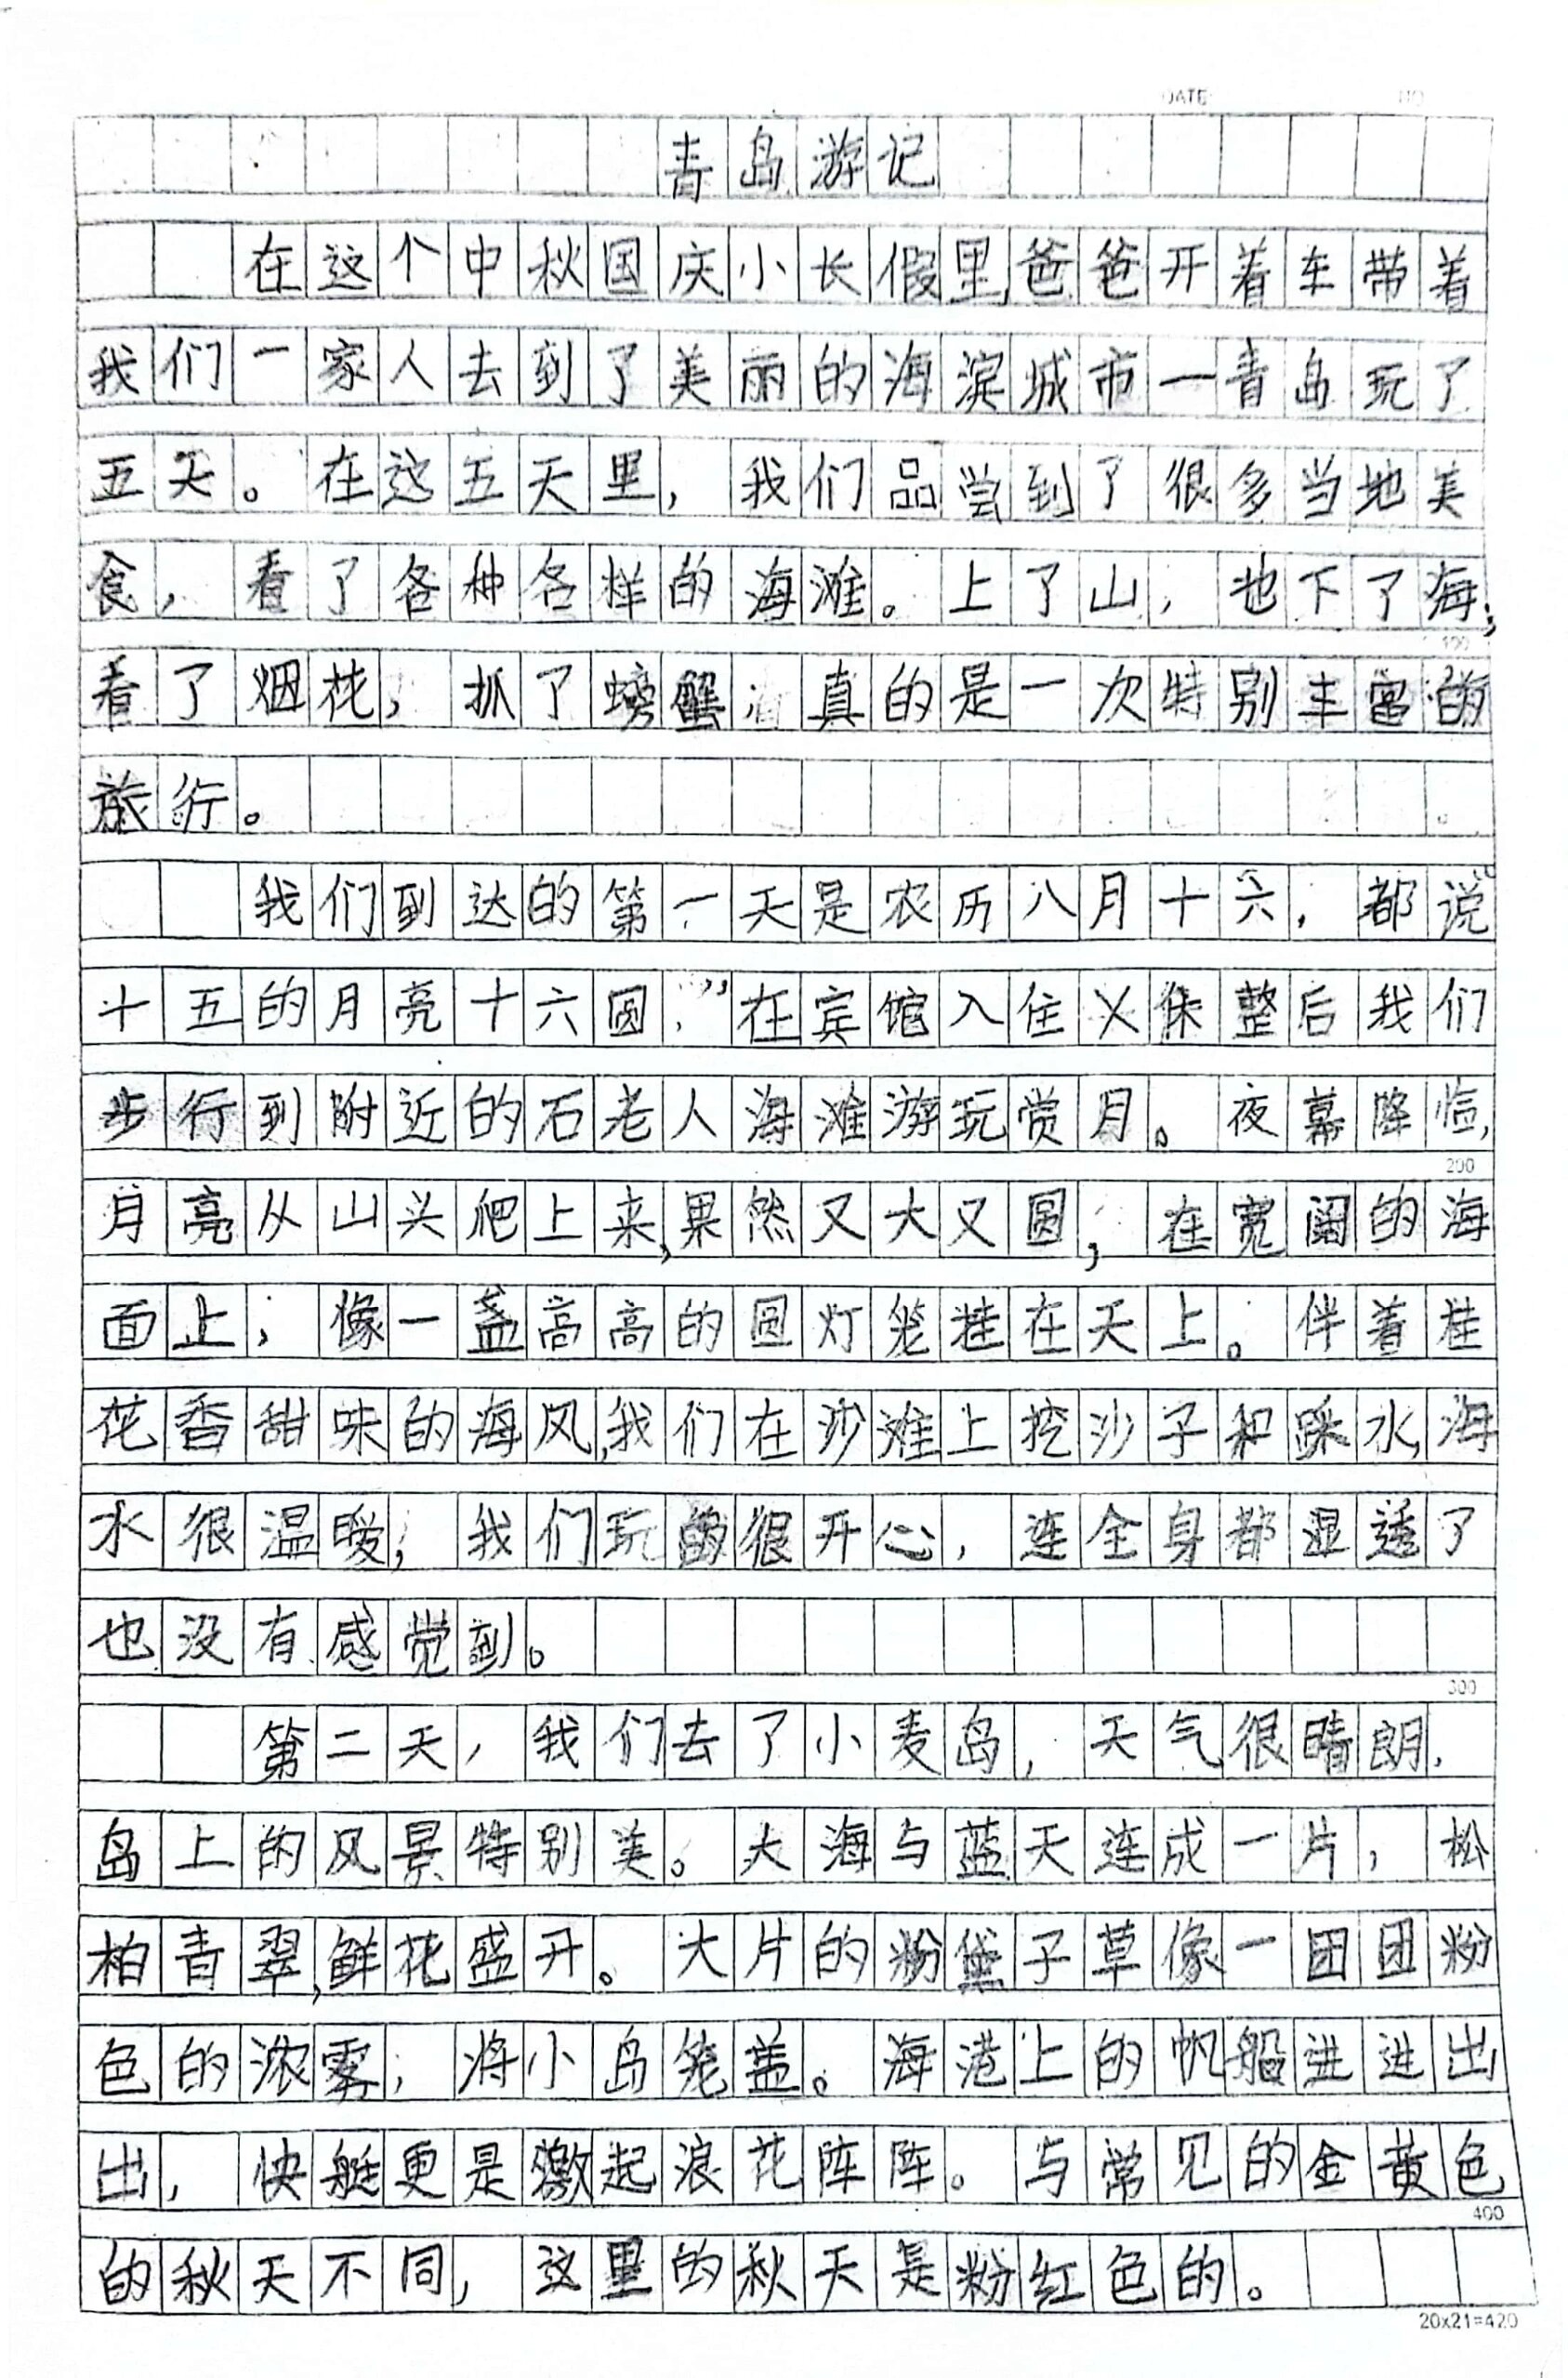 DATE NO
青岛游记
在这个中秋国庆小长假里,爸爸开着车带着
我们一家人去到了美丽的海滨城市一青岛玩了
五天。在这五天里,我们品尝到了很多当地美
食,看了各种各样的海滩。上了山,也下了海;
100
看了烟花,抓了螃蟹,真的是一次特别丰富的
旅行。
我们到达的第一天是农历八月十六,都说“
十五的月亮十六圆,”在宾馆入住休整后我们
步行到附近的石老人海滩游玩赏月。夜幕降临,
200
月亮从山头爬上来,果然又大又圆,在宽阔的海
面上,像一盏高高的圆灯笼挂在天上。伴着桂
花香甜味的海风,我们在沙滩上挖沙子和踩水,海
水很温暖,我们玩的很开心,连全身都湿透了
也没有感觉到。
300
第二天,我们去了小麦岛,天气很晴朗.
岛上的风景特别美。大海与蓝天连成一片,松
柏青翠,鲜花盛开。大片的粉黛子草像一团团粉
色的浓雾,将小岛笼盖。海港上的帆船进进出
出,快艇更是激起浪花阵阵。与常见的金黄色
400
的秋天不同,这里的秋天是粉红色的。
20x21=420